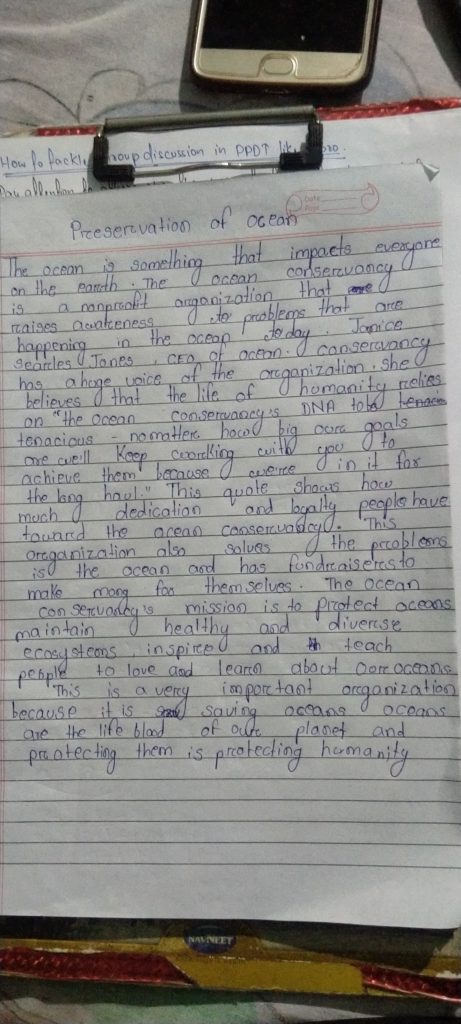 How to tackle group discussion in PPDT like a pro.
Pay attention to
Date
Page
Preservation of ocean
The ocean is something that impacts everyone
on the earth. The ocean conservancy
is a nonprofit organization that
raises awareness to problems that are
happening in the ocean today. Janice
Searles Jones, CEO of ocean conservancy
has a huge voice of the organization. She
believes that the life of humanity relies
on "the ocean conservancy's DNA to be
tenacious - no matter how big our goals
are we'll keep working with you to
achieve them because we're in it for
the long haul." This quote shows how
much dedication and loyalty people have
toward the ocean conservancy. This
organization also solves the problems
is the ocean and has fundraisers to
make mong foo themselves. The ocean
conservancy's mission is to protect oceans
maintain healthy and diverse
ecosysteons, inspire and teach
people to love and learn about oore oceans
This is a very important organization
because it is saving oceans oceans
are the life blood of our planet and
protecting them is protecting humanity
NAVNEET